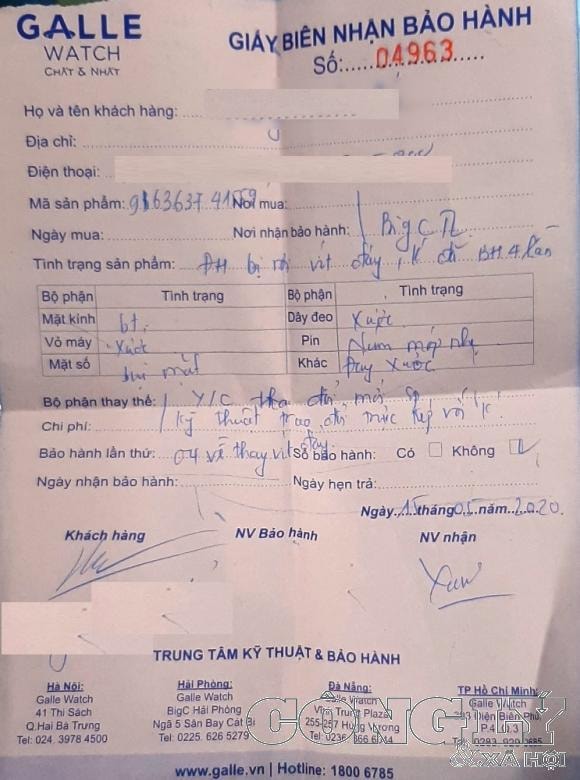 GALLE
WATCH
CHẤT & NHẤT
GIẤY BIÊN NHẬN BẢO HÀNH
Số: 04963
Họ và tên khách hàng:
Địa chỉ:
Điện thoại:
Mã sản phẩm: Nơi mua:
Ngày mua: Nơi nhận bảo hành: Big C TL
Tình trạng sản phẩm: ĐH bị rơi vít đáy, BH 4 lần
Bộ phận Tình trạng Bộ phận Tình trạng
Mặt kính bt. Dây đeo Xước
Vỏ máy Xước Pin
Mặt số Khác Đáy xước
Bộ phận thay thế: Y/C
Chi phí: kỹ thuật trao đổi trực tiếp với K
Bảo hành lần thứ: 04 về thay vít đáy. Sổ bảo hành: Có Không
Ngày nhận bảo hành: Ngày hẹn trả:
Ngày 15 tháng 05 năm 2020.
Khách hàng NV Bảo hành NV nhận
TRUNG TÂM KỸ THUẬT & BẢO HÀNH
Hà Nội:
Galle Watch
41 Thi Sách
Q.Hai Bà Trưng
Tel: 024. 3978 4500
Hải Phòng:
Galle Watch
BigC Hải Phòng
Ngã 5 Sân Bay Cát Bi
Tel: 0225. 626 5279
Đà Nẵng:
Galle Watch
Vĩnh Trung Plaza
255-257 Hùng Vương
Tel: 0236
TP Hồ Chí Minh:
Galle Watch
Điện Biên Phủ
P.4 Q.3
CÔNG LÝ
& XÃ HỘI
www.galle.vn | Hotline: 1800 6785